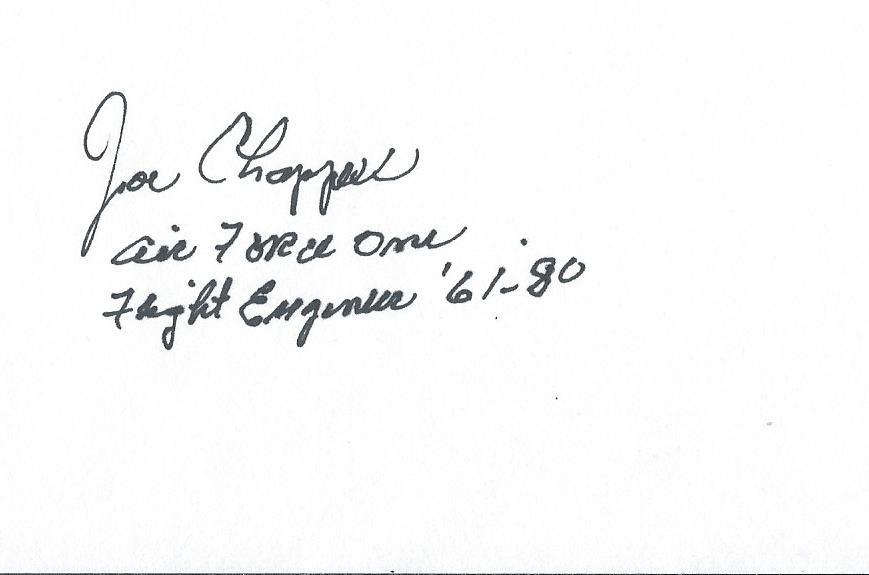 Joe Chappell
Air Force One
Flight Engineer '61-80